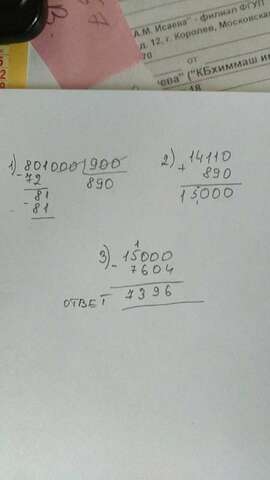 А.М. Исаева" - филиал ФГУП
д. 12, г. Королев, Московская
70
от
ева" ("КБхиммаш им
18
1) 801000 900
- 72 890
81
- 81
2) 14110
+ 890
15000
3) 1
- 15000
7604
ОТВЕТ 7396